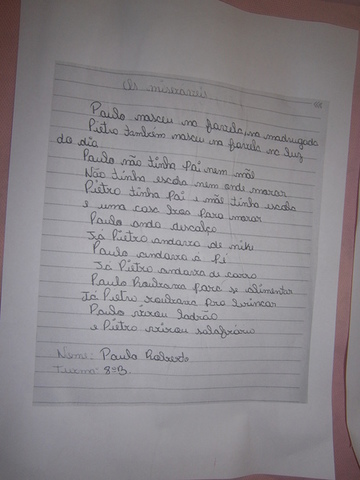 Os miseraveis
Paulo nasceu na favela, na madrugada
Pietro também nasceu na favela na luz
do dia
Paulo não tinha Pai nem mãe
Não tinha escola nem onde morar
Pietro tinha Pai e mãe tinha escola
e uma casa boa para morar
Paulo anda descalço
Já Pietro andava de nike
Paulo andava a Pé
Já Pietro andava de carro
Paulo Roubava para se alimentar
Já Pietro roubava pro brincar
Paulo virou ladrão
e Pietro virou salafrário
Nome: Paulo Roberto
Turma: 8ºB